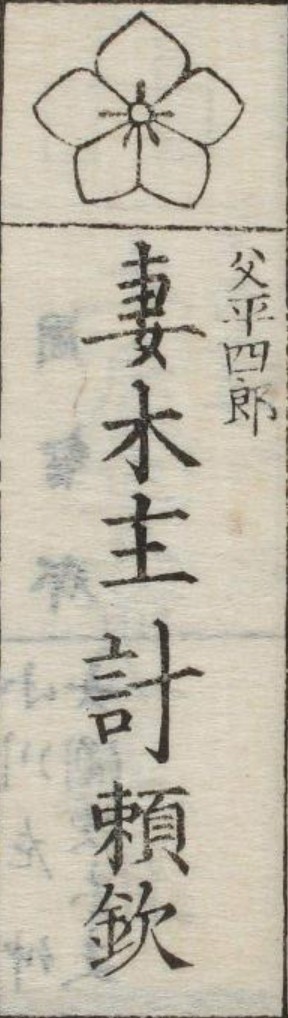 父平四郎
妻木主計頼欽